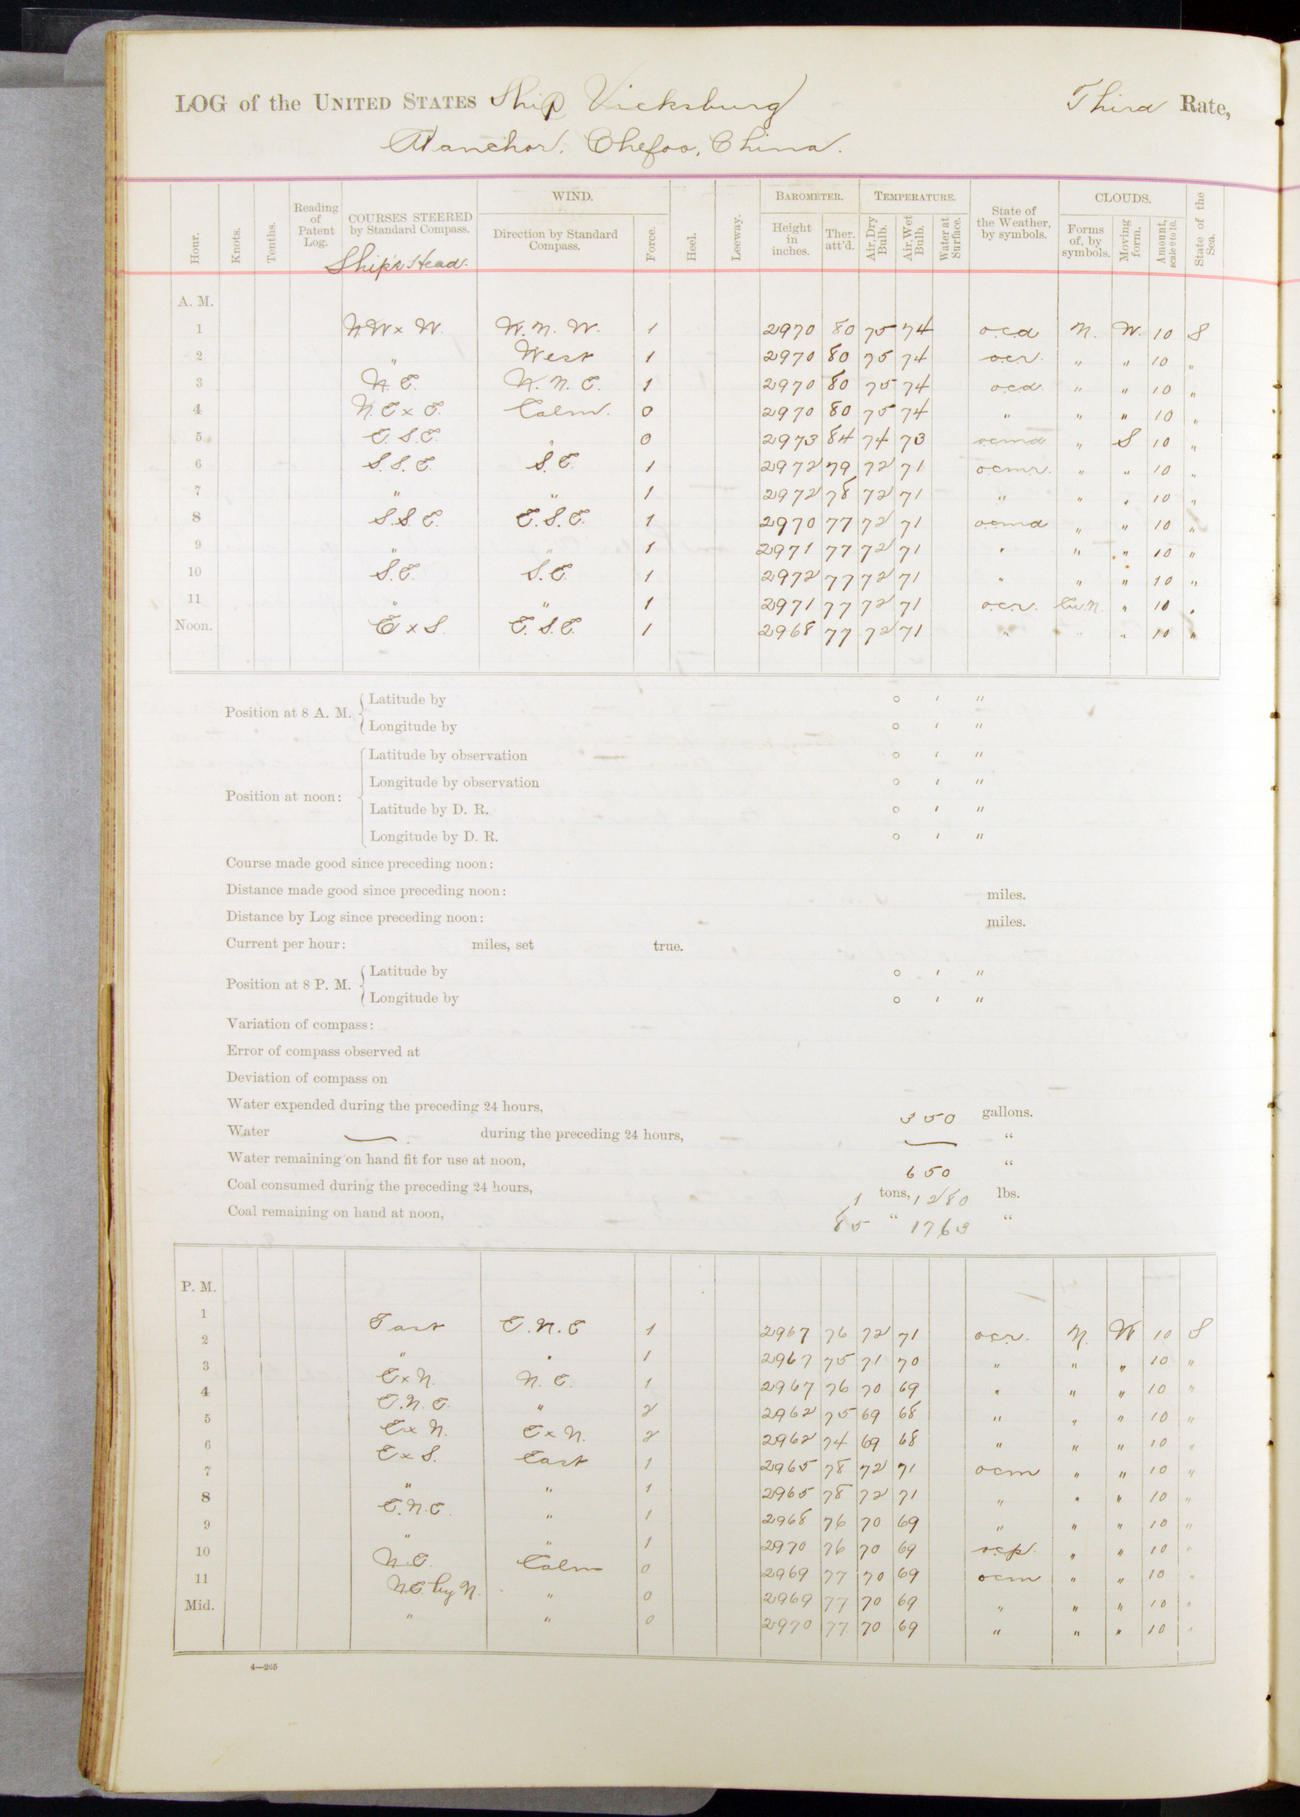 LOG of the UNITED STATES Ship Vicksburg Third Rate,
At anchor. Chefoo, China.
Hour. Knots. Tenths. Reading of Patent Log. COURSES STEERED by Standard Compass. WIND. Direction by Standard Compass. Force. Heel. Leeway. BAROMETER. Height in inches. Ther. att'd. TEMPERATURE. Air, Dry Bulb. Air, Wet Bulb. Water at Surface. State of the Weather, by symbols. CLOUDS. Forms of, by symbols. Moving form. Amount, scale 0 to 10. State of the Sea.
Ship's Head.
A. M.
1 NW x W. W. N. W. 1 2970 80 75 74 o.c.d N. W. 10 S
2 " West 1 2970 80 75 74 ocr. " " 10 "
3 N. E. N. N. E. 1 2970 80 75 74 ocd " " 10 "
4 N. E x E. Calm. 0 2970 80 75 74 " " " 10 "
5 E. S. E. " 0 2973 84 74 73 ocmd " S 10 "
6 S. S. E. S. E. 1 2972 79 72 71 ocmr. " " 10 "
7 " " 1 2972 78 72 71 " " " 10 "
8 S. S. E. E. S. E. 1 2970 77 72 71 ocmd " " 10 "
9 " " 1 2971 77 72 71 " " " 10 "
10 S. E. S. E. 1 2972 77 72 71 " " " 10 "
11 " " 1 2971 77 72 71 ocr. Cu.N. " 10 "
Noon. E x S. E. S. E. 1 2968 77 72 71 " " " 10 "
Position at 8 A. M. Latitude by ° ′ ″
Longitude by ° ′ ″
Position at noon: Latitude by observation ° ′ ″
Longitude by observation ° ′ ″
Latitude by D. R. ° ′ ″
Longitude by D. R. ° ′ ″
Course made good since preceding noon:
Distance made good since preceding noon: miles.
Distance by Log since preceding noon: miles.
Current per hour: miles, set true.
Position at 8 P. M. Latitude by ° ′ ″
Longitude by ° ′ ″
Variation of compass:
Error of compass observed at
Deviation of compass on
Water expended during the preceding 24 hours, 350 gallons.
Water — during the preceding 24 hours, — "
Water remaining on hand fit for use at noon, 650 "
Coal consumed during the preceding 24 hours, 1 tons, 1280 lbs.
Coal remaining on hand at noon, 85 " 1763 "
P. M.
1 East E. N. E 1 2967 76 72 71 ocr. N. W 10 S
2 " " 1 2967 75 71 70 " " " 10 "
3 E x N. N. E. 1 2967 76 70 69 " " " 10 "
4 E. N. E. " 2 2962 75 69 68 " " " 10 "
5 E x N. E x N. 2 2962 74 69 68 " " " 10 "
6 E x S. East 1 2965 78 72 71 ocm " " 10 "
7 " " 1 2965 78 72 71 " " " 10 "
8 E. N. E. " 1 2968 76 70 69 " " " 10 "
9 " " 1 2970 76 70 69 ocp. " " 10 "
10 N. E. Calm 0 2969 77 70 69 ocm " " 10 "
11 N.E. by N. " 0 2969 77 70 69 " " " 10 "
Mid. " " 0 2970 77 70 69 " " " 10 "
4—265